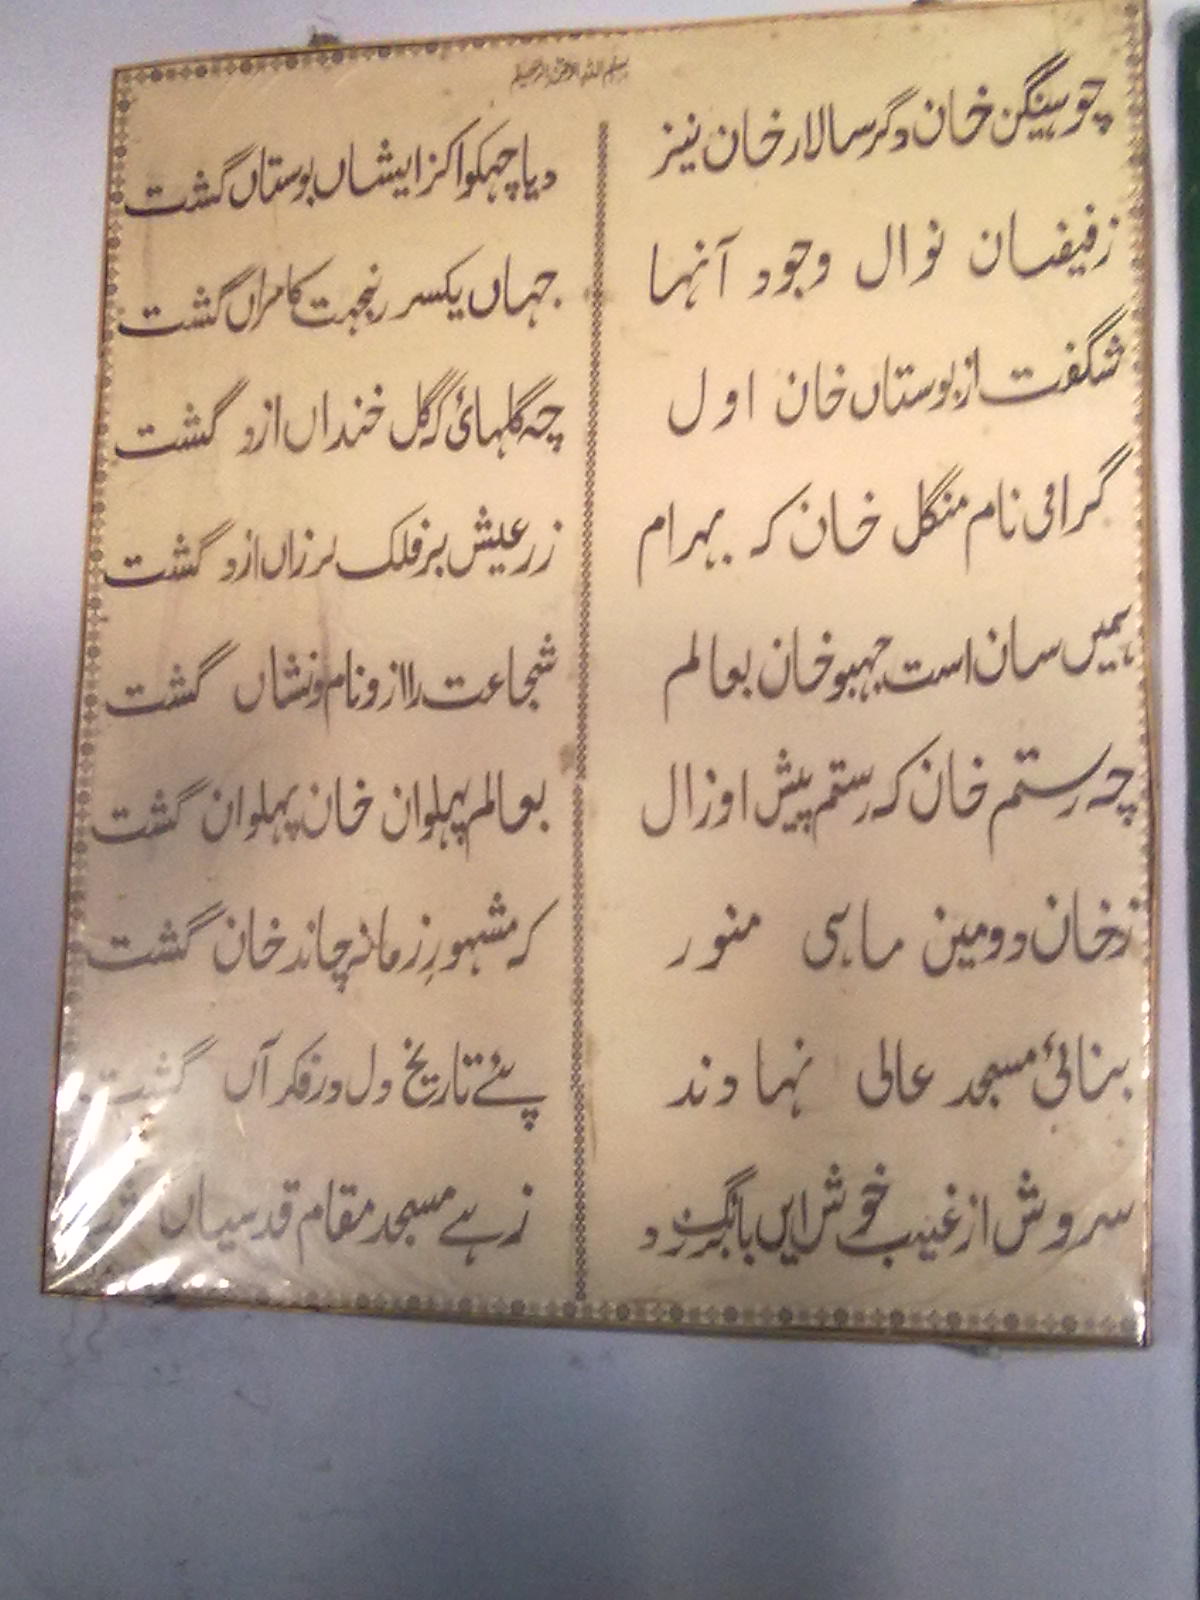 بسم اللہ الرحمن الرحیم
چو سینگن خان دگر سالار خان نیز
دیا چہکوا کز ایشاں بوستاں گشت
ز فیضان نوال وجود آنہا
جہاں یکسر بنجہت کامراں گشت
شگفت از بوستاں خان اول
چہ گلہائ کز گل خنداں ازو گشت
گرامی نام منگل خان کہ بہرام
ز رعیش بر فلک لرزاں ازو گشت
ہمیں سان است جہبو خان بعالم
شجاعت را ازو نام ونشاں گشت
چہ رستم خان کہ رستم پیش او زال
بعالم پہلوان خان پہلوان گشت
ز خان دومین ماہی منور
کہ مشہورِ زمانہ چاند خان گشت
بنائ مسجد عالی نہادند
پئے تاریخ دل در فکر آں گشت
سروش از غیب خوش ایں بانگ برزد
زہے مسجد مقام قدسیاں